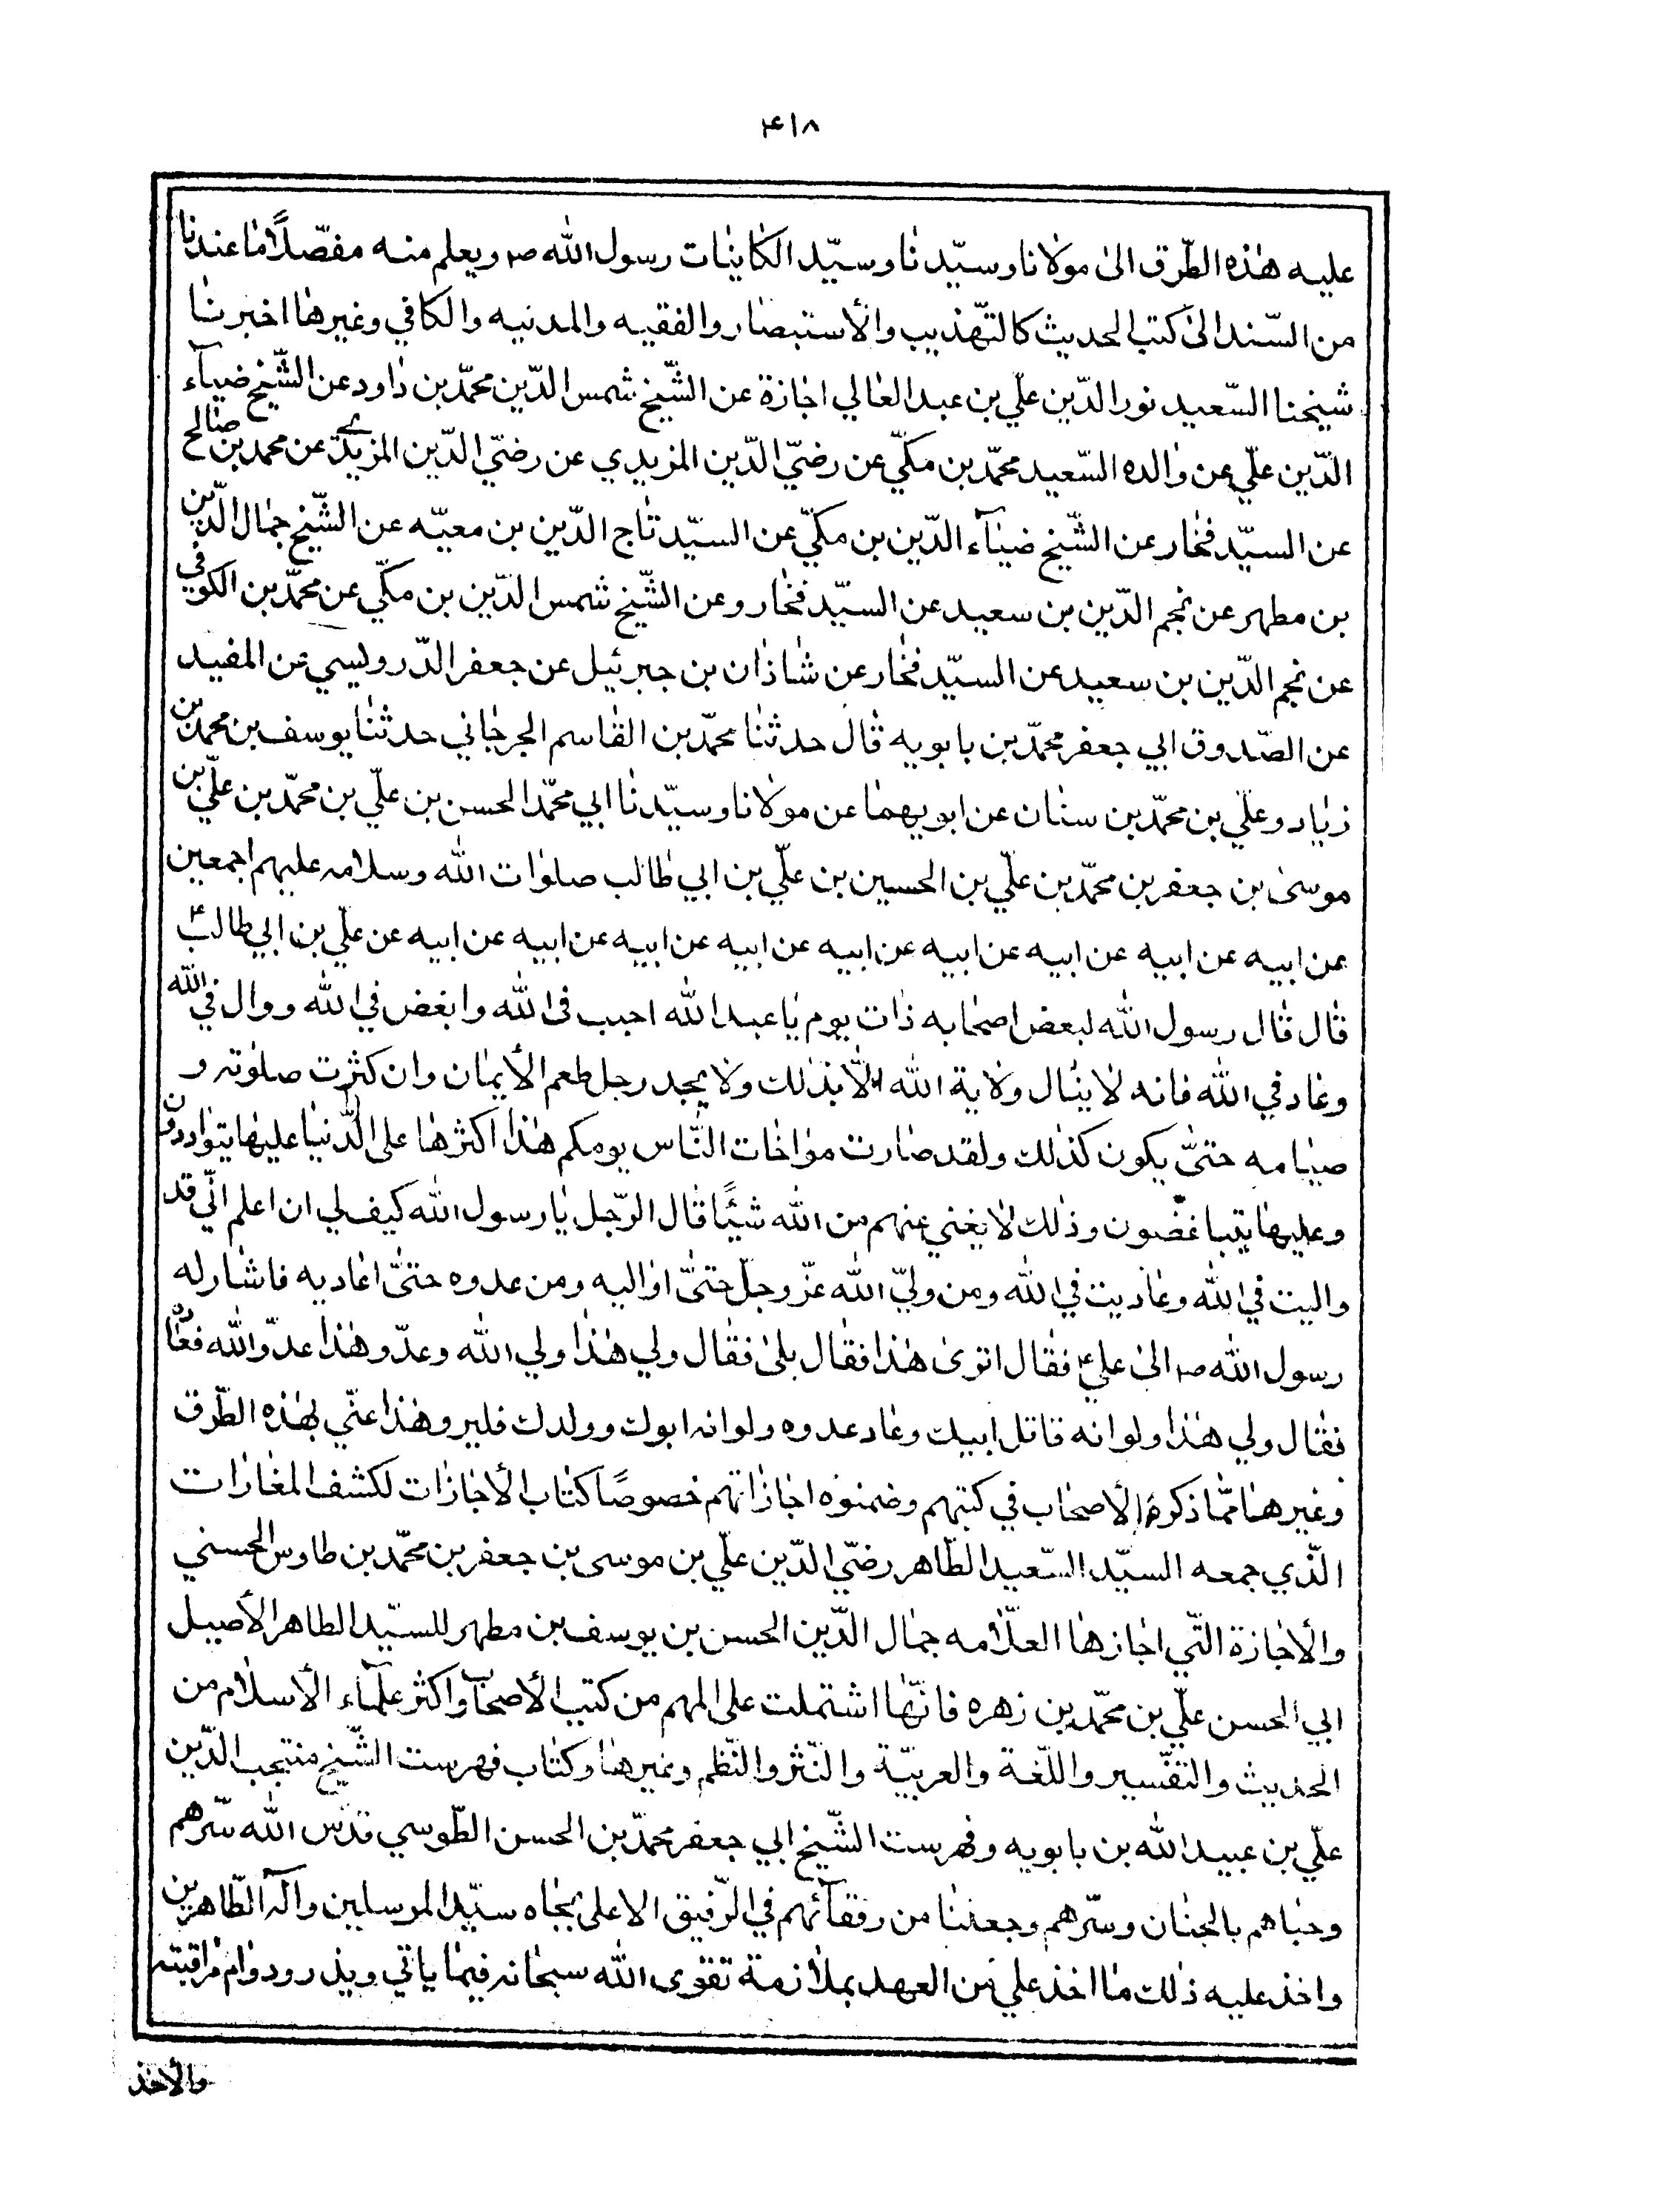 ۴۱۸
عليه هذه الطّرق الى مولانا وسيّدنا وسيّد الكاينات رسول الله ص ويعلم منه مفصّلاً ما عندنا
من السّند الى كتب الحديث كالتّهذيب والأستبصار والفقيه والمدنيه والكافي وغيرها اخبرنا
شيخنا السّعيد نور الدّين علّي بن عبد العالي اجازة عن الشّيخ شمس الدّين محمّد بن داود عن الشّيخ ضيآء
الدّين علّي عن والده السّعيد محمّد بن مكّي عن رضيّ الدّين المزيدي عن رضيّ الدّين المزيدي عن محمد بن صالح
عن السيّد فخار عن الشّيخ ضيآء الدّين بن مكّي عن السيّد تاج الدّين بن معيّه عن الشّيخ جمال الدّين
بن مطهر عن نجم الدّين بن سعيد عن السيّد فخار وعن الشّيخ شمس الدّين بن مكّي عن محمّد بن الكوفي
عن نجم الدّين بن سعيد عن السيّد فخار عن شاذان بن جبرئيل عن جعفر الدّرويسي عن المفيد
عن الصّدوق ابي جعفر محمّد بن بابويه قال حدثنا محمّد بن القاسم الجرجاني حدثنا يوسف بن محمد بن
زياد وعلّي بن محمّد بن سنان عن ابويهما عن مولانا وسيّدنا ابي محمّد الحسن بن علّي بن محمّد بن علّي بن
موسى بن جعفر بن محمّد بن علّي بن الحسين بن علّي بن ابي طالب صلوات الله وسلامه عليهم اجمعين
عن ابيه عن ابيه عن ابيه عن ابيه عن ابيه عن ابيه عن ابيه عن ابيه عن ابيه عن علّي بن ابي طالب ع
قال قال رسول الله لبعض اصحابه ذات يوم يا عبد الله احبب في الله وابغض في الله ووال في الله
وعاد في الله فانه لا ينال ولاية الله الّا بذلك ولا يجد رجل طعم الأيمان وان كثرت صلوته و
صيامه حتىّ يكون كذلك ولقد صارت مواخات النّاس يومكم هذا اكثرها على الدّنيا عليها يتواددون
وعليها يتباغضون وذلك لا يغني عنهم من الله شيئًا قال الرّجل يا رسول الله كيف لي ان اعلم انّي قد
واليت في الله وعاديت في الله ومن وليّ الله عزّ وجلّ حتىّ اواليه ومن عدوه حتىّ اعاديه فاشار له
رسول الله ص الى علي ع فقال اترى هذا فقال بلى فقال ولي هذا ولي الله وعدّو هذا عدّو الله فعاده
فقال ولي هذا ولو انه قاتل ابيك وعاد عدوه ولو انه ابوك وولدك فليرو هذا عنّي بهذه الطّرق
وغيرها ممّا ذكره الأصحاب في كتبهم وضمنوه اجازاتهم خصوصًا كتاب الأجازات لكشف المغازات
الّذي جمعه السيّد السّعيد الطّاهر رضيّ الدّين علّي بن موسى بن جعفر بن محمّد بن طاوس الحسني
والأجازة التّي اجازها العلّامه جمال الدّين الحسن بن يوسف بن مطهر للسيّد الطاهر الأصيل
ابي الحسن علّي بن محمّد بن زهره فانّها اشتملت على المهم من كتب الأصحاب واكثر علمآء الأسلام من
الحديث والتفّسير واللّغة والعربيّة والنّثر والنّظم وغيرها وكتاب فهرست الشّيخ منتجب الدّين
علّي بن عبيد الله بن بابويه وفهرست الشّيخ ابي جعفر محمّد بن الحسن الطّوسي قدّس الله سّرهم
وحباهم بالجنان وسّرهم وجعلنا من رفقآئهم في الرّفيق الاعلى بجاه سيّد المرسلين وآله الطّاهرين
واخذ عليه ذلك ما اخذ علي من العهد بملازمة تقوى الله سبحانه فيما ياتي ويذر ودوام مراقبته
والأخذ